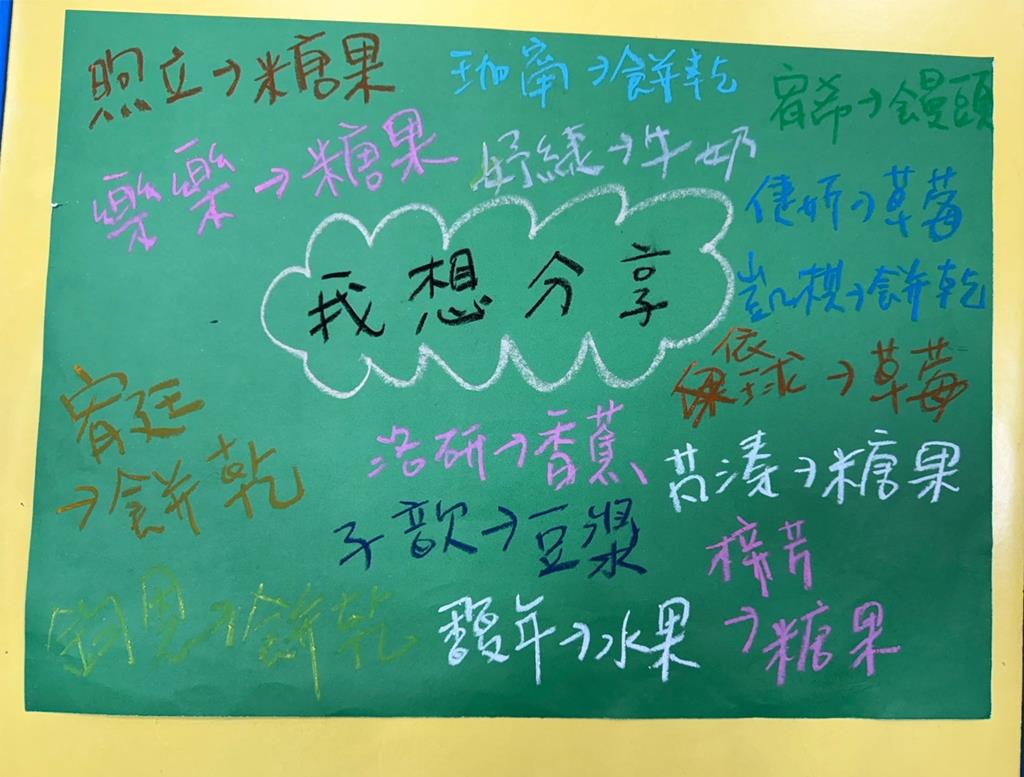 煦立→糖果
珈甯→餅乾
宥希→饅頭
樂樂→糖果
妤緁→牛奶
倢妍→草莓
我想分享
凱棋→餅乾
依球→草莓
宥廷
→餅乾
浩研→香蕉
芮溱→糖果
子歆→豆漿
梓芳
→糖果
恩→餅乾
馥年→水果